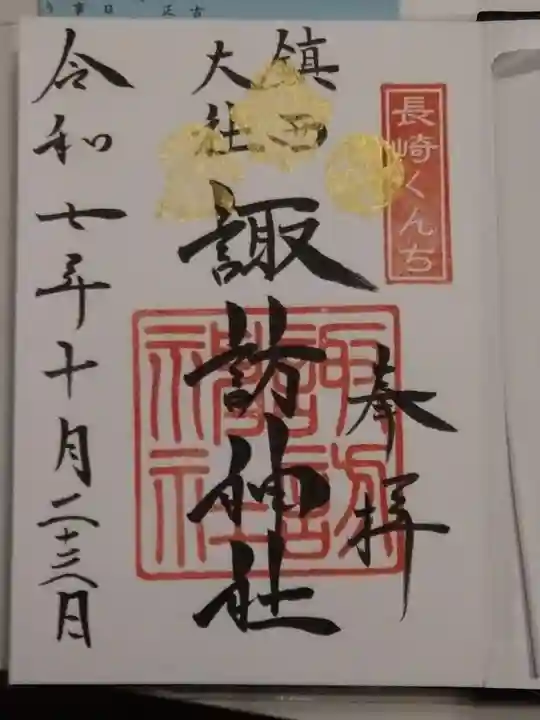 長崎くんち
奉拝
鎮西
大社
諏訪神社
令和七年十月二十三日